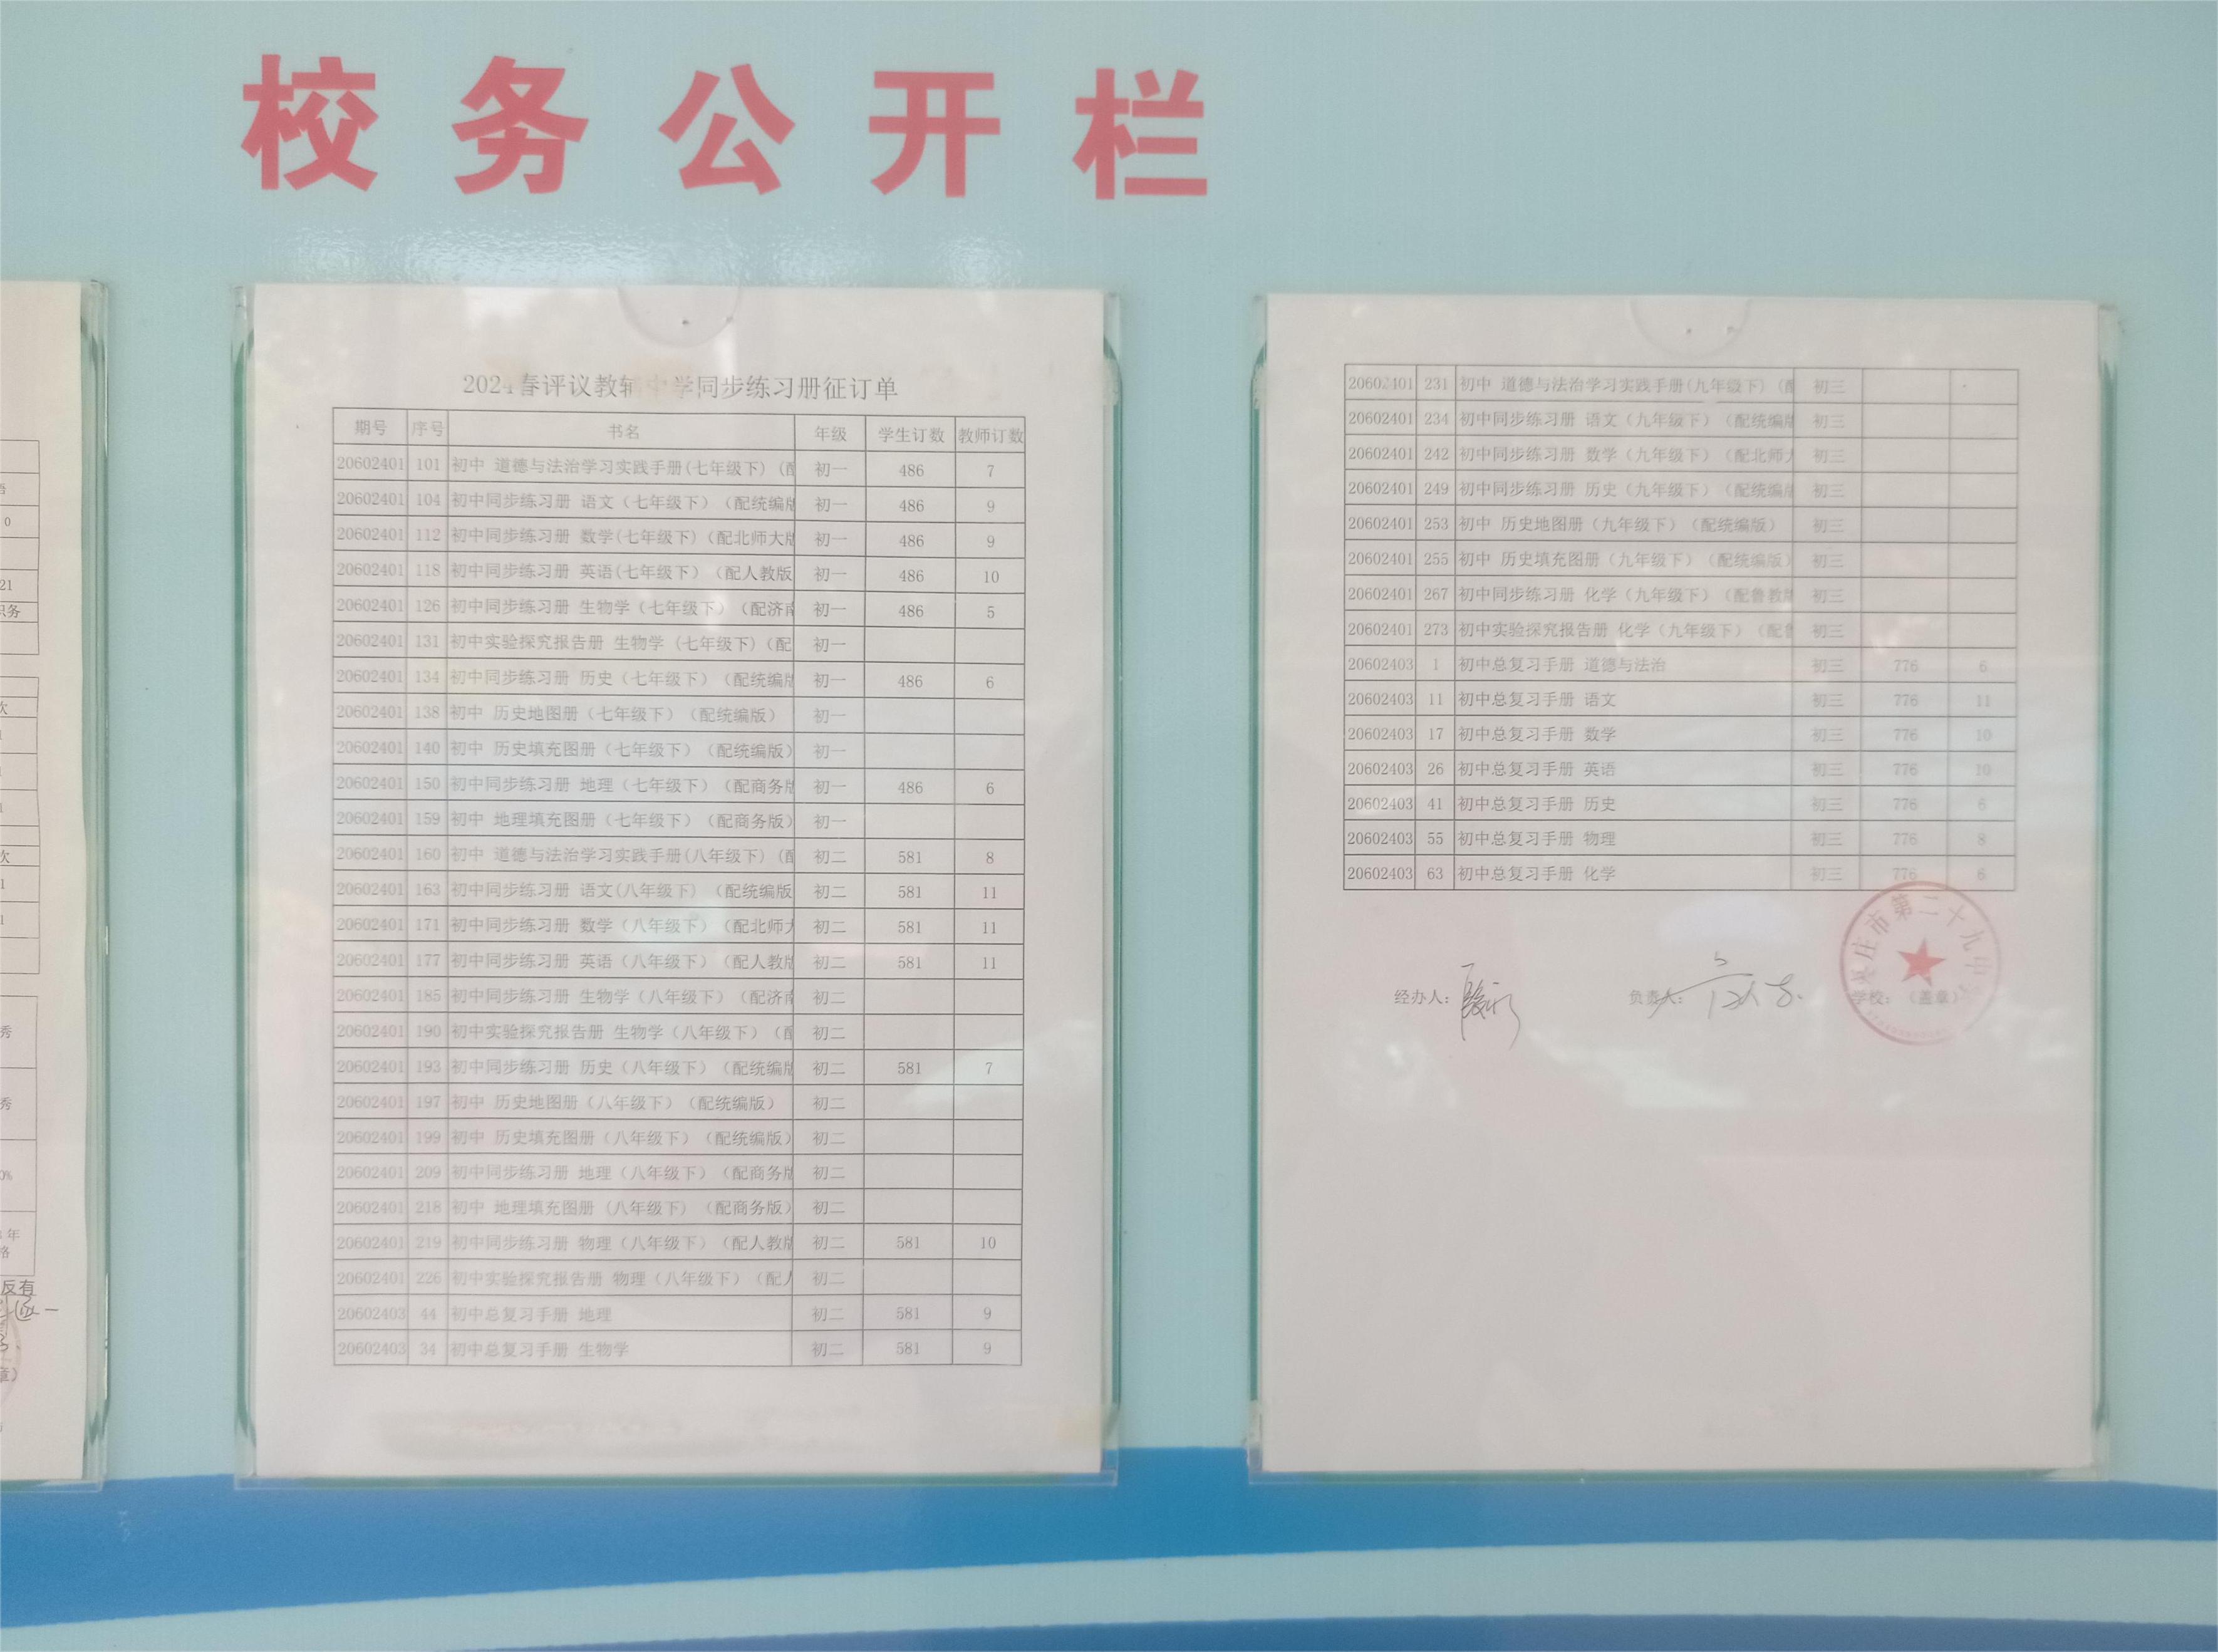 校务公开栏
2024春评议教辅中学同步练习册征订单
期号 序号 书名 年级 学生订数 教师订数
20602401 101 初中 道德与法治学习实践手册(七年级下)(配 初一 486 7
20602401 104 初中同步练习册 语文（七年级下）（配统编版 初一 486 9
20602401 112 初中同步练习册 数学(七年级下)（配北师大版 初一 486 9
20602401 118 初中同步练习册 英语(七年级下)（配人教版 初一 486 10
20602401 126 初中同步练习册 生物学（七年级下）（配济南 初一 486 5
20602401 131 初中实验探究报告册 生物学 (七年级下)（配 初一
20602401 134 初中同步练习册 历史（七年级下）（配统编版 初一 486 6
20602401 138 初中 历史地图册（七年级下）（配统编版） 初一
20602401 140 初中 历史填充图册（七年级下）（配统编版） 初一
20602401 150 初中同步练习册 地理（七年级下）（配商务版 初一 486 6
20602401 159 初中 地理填充图册（七年级下）（配商务版） 初一
20602401 160 初中 道德与法治学习实践手册(八年级下)(配 初二 581 8
20602401 163 初中同步练习册 语文(八年级下)（配统编版 初二 581 11
20602401 171 初中同步练习册 数学（八年级下）（配北师大 初二 581 11
20602401 177 初中同步练习册 英语（八年级下）（配人教版 初二 581 11
20602401 185 初中同步练习册 生物学（八年级下）（配济南 初二
20602401 190 初中实验探究报告册 生物学（八年级下）（配 初二
20602401 193 初中同步练习册 历史（八年级下）（配统编版 初二 581 7
20602401 197 初中 历史地图册（八年级下）（配统编版） 初二
20602401 199 初中 历史填充图册（八年级下）（配统编版） 初二
20602401 209 初中同步练习册 地理（八年级下）（配商务版 初二
20602401 218 初中 地理填充图册 (八年级下)（配商务版） 初二
20602401 219 初中同步练习册 物理（八年级下）（配人教版 初二 581 10
20602401 226 初中实验探究报告册 物理（八年级下）（配人 初二
20602403 44 初中总复习手册 地理 初二 581 9
20602403 34 初中总复习手册 生物学 初二 581 9
20602401 231 初中 道德与法治学习实践手册(九年级下)(配 初三
20602401 234 初中同步练习册 语文（九年级下）（配统编版 初三
20602401 242 初中同步练习册 数学（九年级下）（配北师大 初三
20602401 249 初中同步练习册 历史（九年级下）（配统编版 初三
20602401 253 初中 历史地图册（九年级下）（配统编版） 初三
20602401 255 初中 历史填充图册（九年级下）（配统编版） 初三
20602401 267 初中同步练习册 化学（九年级下）（配鲁教版 初三
20602401 273 初中实验探究报告册 化学（九年级下）（配鲁 初三
20602403 1 初中总复习手册 道德与法治 初三 776 6
20602403 11 初中总复习手册 语文 初三 776 11
20602403 17 初中总复习手册 数学 初三 776 10
20602403 26 初中总复习手册 英语 初三 776 10
20602403 41 初中总复习手册 历史 初三 776 6
20602403 55 初中总复习手册 物理 初三 776 8
20602403 63 初中总复习手册 化学 初三 776 6
经办人： 负责人： 学校：（盖章）
枣庄市第二十九中
0
21
职务
次
次
1
秀
秀
0%
年
格
反有
章）